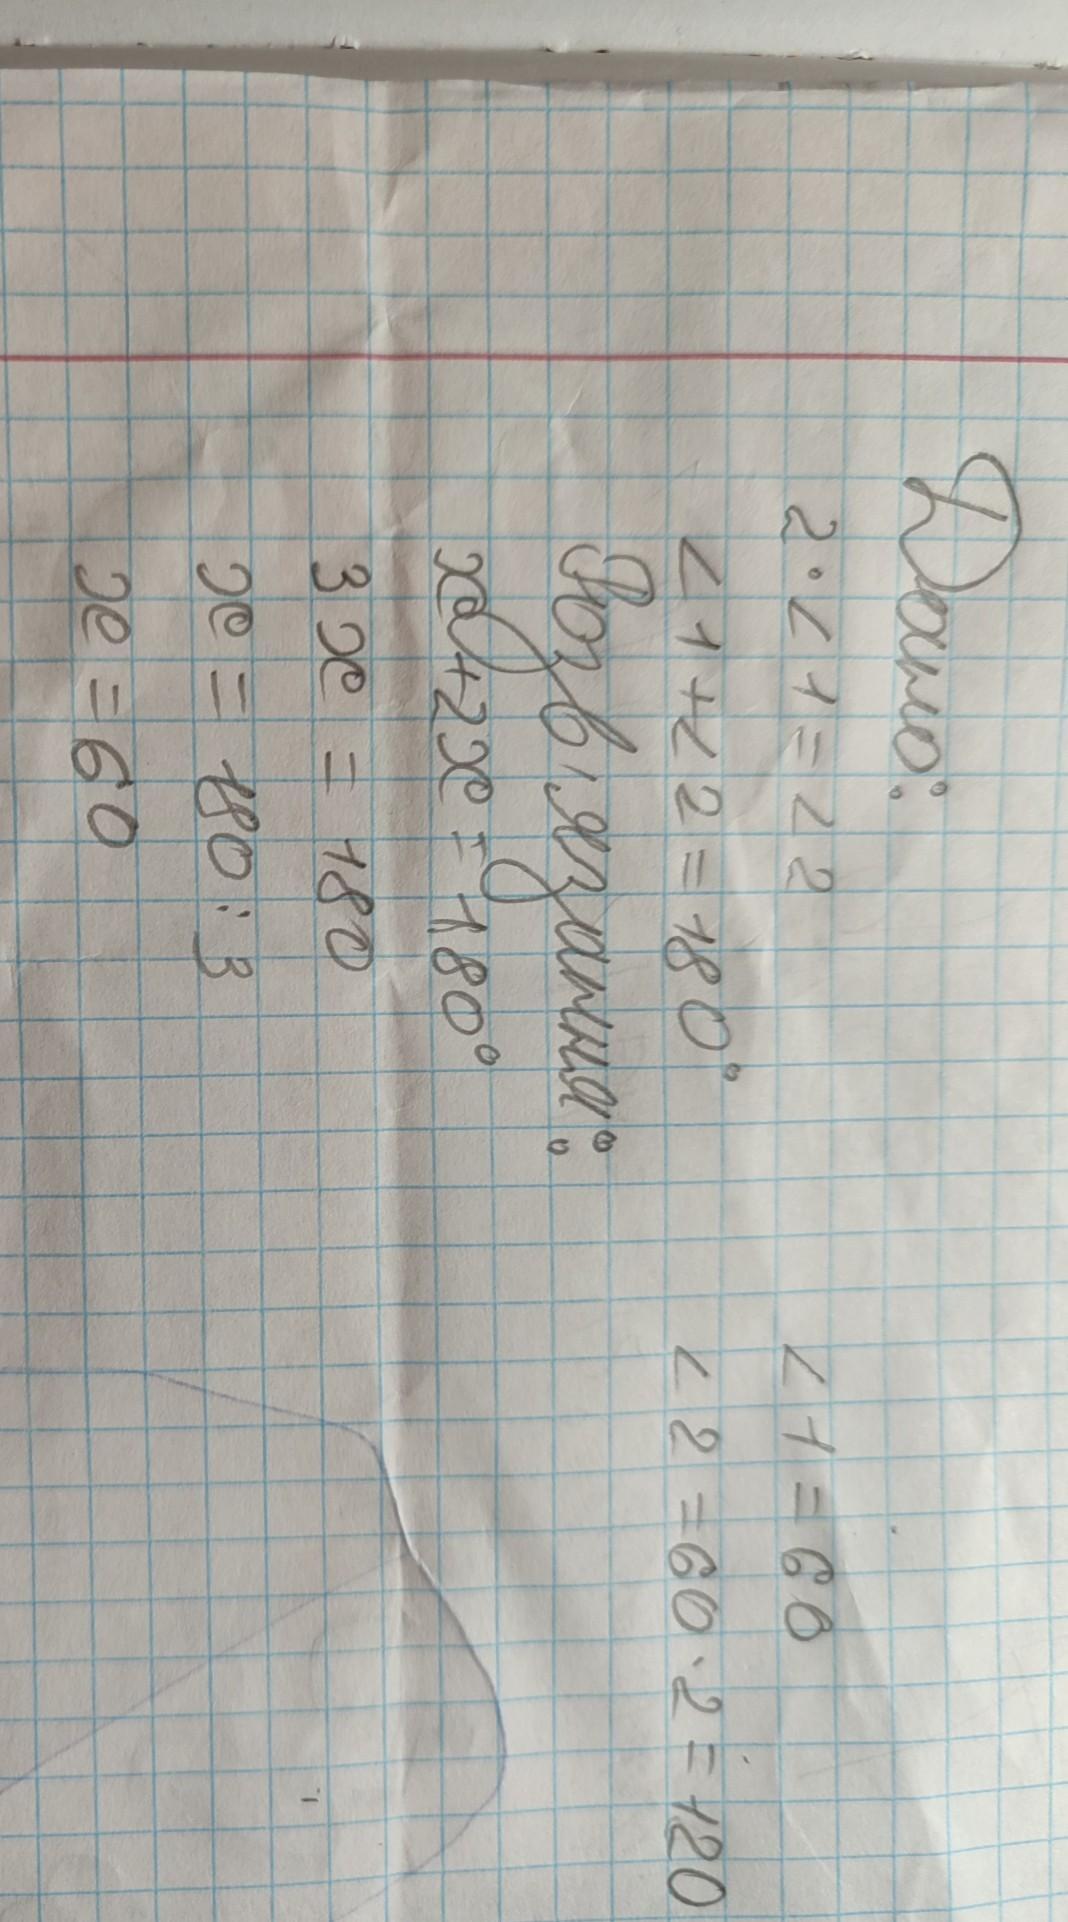 Дано:
2·∠1=∠2
∠1+∠2=180°
Розв'язання:
x+2x=180°
3x=180
x=180:3
x=60
∠1=60
∠2=60·2=120